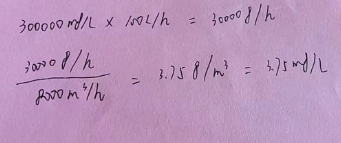 300000 mg/L × 100L/h = 30000 g/h
30000 g/h
8000 m³/h
= 3.75 g/m³ = 3.75 mg/L